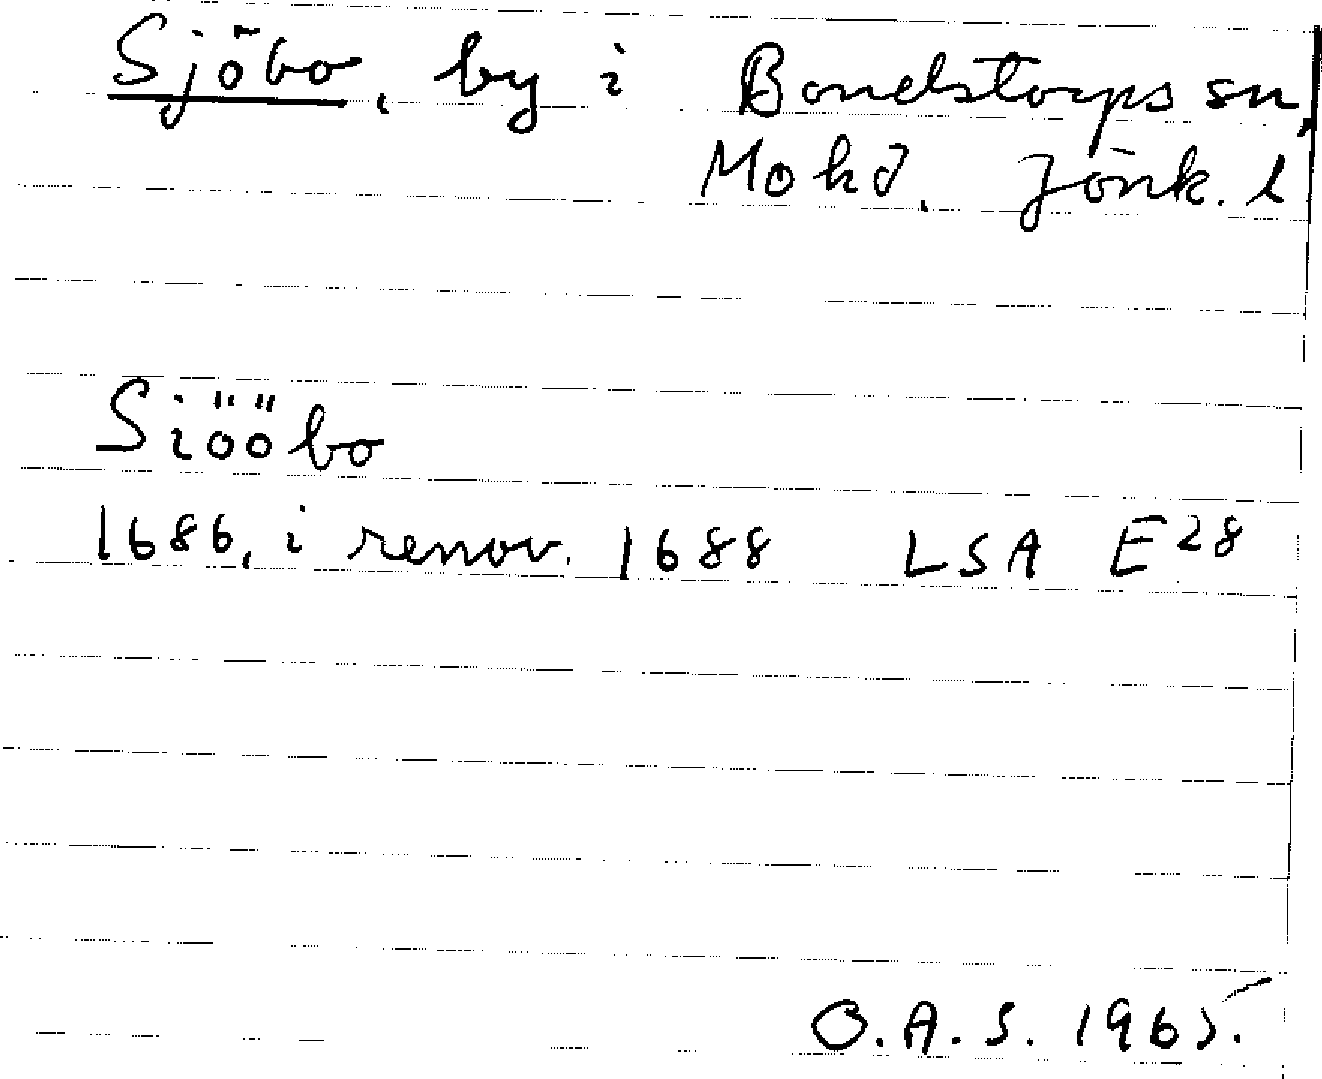 Sjöbo, by i Bondstorps sn,
Mo hd, Jönk. l
Siööbo
1686, i renov. 1688 LSA E28
O.A.S. 1965.